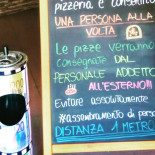 pizzeria è consentito
UNA PERSONA ALLA
VOLTA
Le pizze verranno
CONSEGNATE DAL
PERSONALE ADDETTO
ALL'ESTERNO!!!
Evitare assolutamente
assembramento di persone
DISTANZA 1 METRO